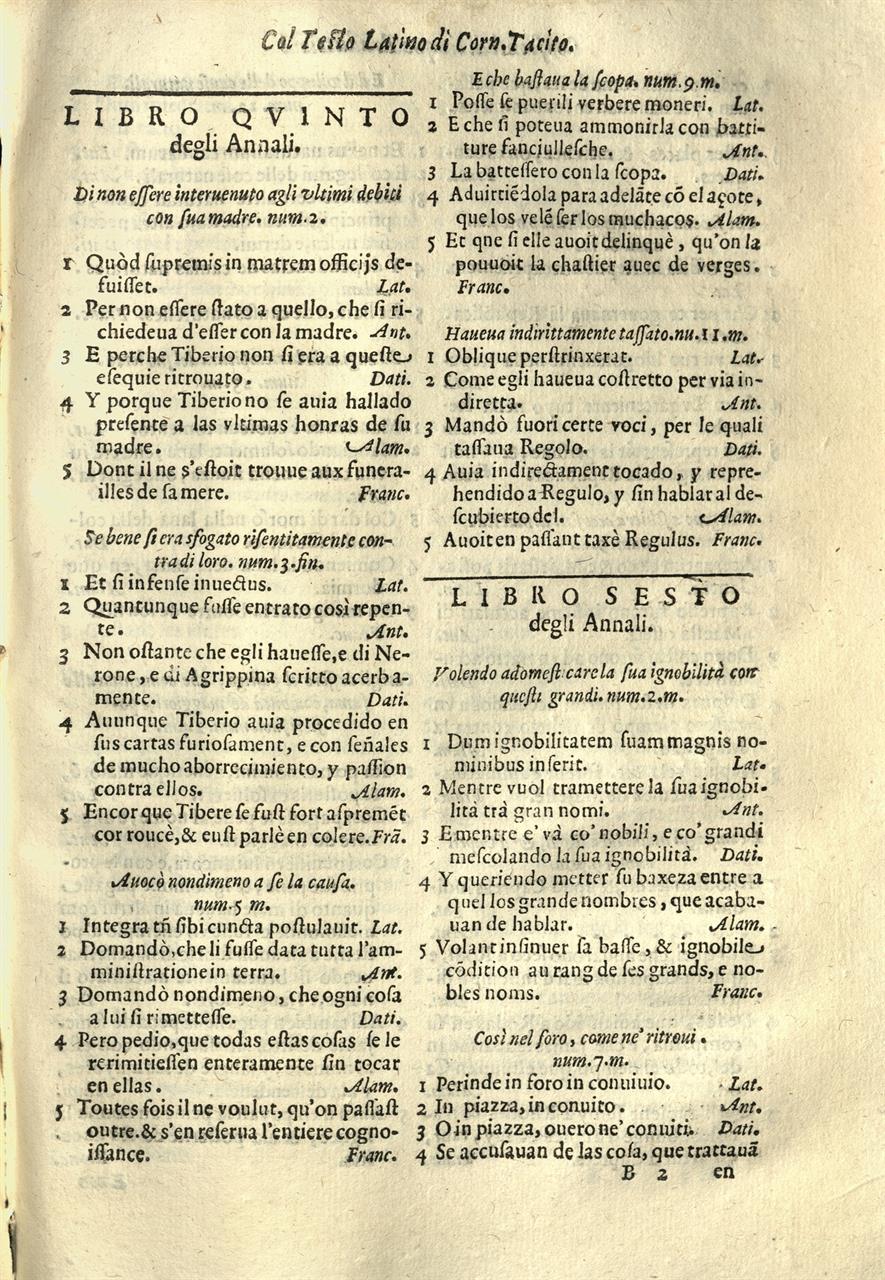 Col Testo Latino di Corn.Tacito.
LIBRO QVINTO
degli Annali.
Di non essere interuenuto agli vltimi debiti
con sua madre. num.2.
1 Quòd supremis in matrem officijs de-
fuisset. Lat.
2 Per non essere stato a quello, che si ri-
chiedeua d'esser con la madre. Ant.
3 E perche Tiberio non si era a queste
esequie ritrouato. Dati.
4 Y porque Tiberio no se auia hallado
presente a las vltimas honras de su
madre. Alam.
5 Dont il ne s'estoit trouue aux funera-
illes de sa mere. Franc.
Se bene si era sfogato risentitamente con-
tra di loro. num.3.fin.
1 Et si infense inuectus. Lat.
2 Quantunque fusse entrato così repen-
te. Ant.
3 Non ostante che egli hauesse,e di Ne-
rone, e di Agrippina scritto acerba-
mente. Dati.
4 Auunque Tiberio auia procedido en
sus cartas furiosament, e con señales
de mucho aborrecimiento, y passion
contra ellos. Alam.
5 Encor que Tibere se fust fort aspremẽt
cor roucè,& eust parlè en colere.Frã.
Auocò nondimeno a se la causa.
num.5 m.
1 Integra tñ sibi cuncta postulauit. Lat.
2 Domandò,che li fusse data tutta l'am-
ministratione in terra. Ant.
3 Domandò nondimeno, che ogni cosa
a lui si rimettesse. Dati.
4 Pero pedio,que todas estas cosas se le
rerimitiessen enteramente sin tocar
en ellas. Alam.
5 Toutes fois il ne voulut, qu'on passast
outre.& s'en reserua l'entiere cogno-
issance. Franc.
E che bastaua la scopa. num.9.m.
1 Posse se puerili verbere moneri. Lat.
2 E che si poteua ammonirla con batti-
ture fanciullesche. Ant.
3 La battessero con la scopa. Dati.
4 Aduirtiẽdola para adelãte cõ el açote,
que los velẽ ser los muchacos. Alam.
5 Et qne si elle auoit delinquè, qu'on la
pouuoit la chastier auec de verges.
Franc.
Haueua indirittamente tassato.nu.11.m.
1 Oblique perstrinxerat. Lat.
2 Come egli haueua costretto per via in-
diretta. Ant.
3 Mandò fuori certe voci, per le quali
tassaua Regolo. Dati.
4 Auia indirectament tocado, y repre-
hendido a Regulo, y sin hablar al de-
scubierto del. Alam.
5 Auoit en passant taxè Regulus. Franc.
LIBRO SESTO
degli Annali.
Volendo adomesticare la sua ignobilità con
questi grandi. num.2.m.
1 Dum ignobilitatem suam magnis no-
minibus inserit. Lat.
2 Mentre vuol tramettere la sua ignobi-
lità trà gran nomi. Ant.
3 E mentre e' và co' nobili, e co' grandi
mescolando la sua ignobilità. Dati.
4 Y queriendo metter su baxeza entre a
quel los grande nombres, que acaba-
uan de hablar. Alam.
5 Volant insinuer sa basse, & ignobile
cõdition au rang de ses grands, e no-
bles noms. Franc.
Così nel foro, come ne' ritroui.
num.7.m.
1 Perinde in foro in conuiuio. Lat.
2 In piazza, in conuito. Ant.
3 O in piazza, ouero ne' conuiti. Dati.
4 Se accusauan de las cosa, que trattauã
B 2 en